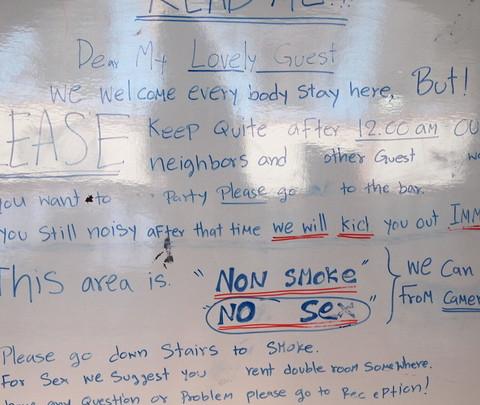 READ ME!!!
Dear My Lovely Guest
We welcome every body stay here, But!
EASE Keep Quite after 12.00 am OU
neighbors and other Guest
you want to Party Please go to the bar.
you still noisy after that time we will kick you out IMM
This area is. "NON SMOKE" } We Can
"NO Sex" From Camer
Please go down Stairs to Smoke.
For Sex we Suggest you rent double room Somewhere.
any Question or Problem please go to Reception!